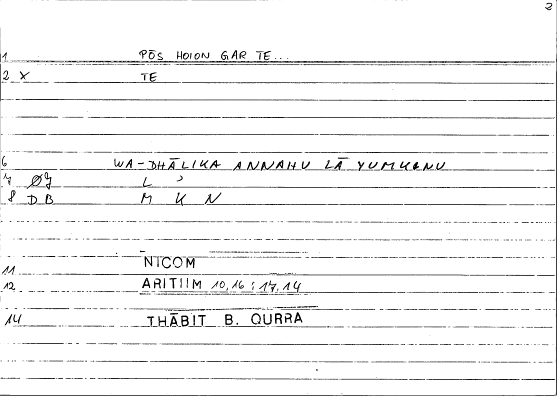 2
1 PŌS HOION GAR TE...
2 X TE
6 WA-DHĀLIKA ANNAHU LĀ YUMKINU
7 Ø7 L ʾ
8 DB M K N
11 NICOM
12 ARITIIM 10,16 : 17,14
14 THĀBIT B. QURRA